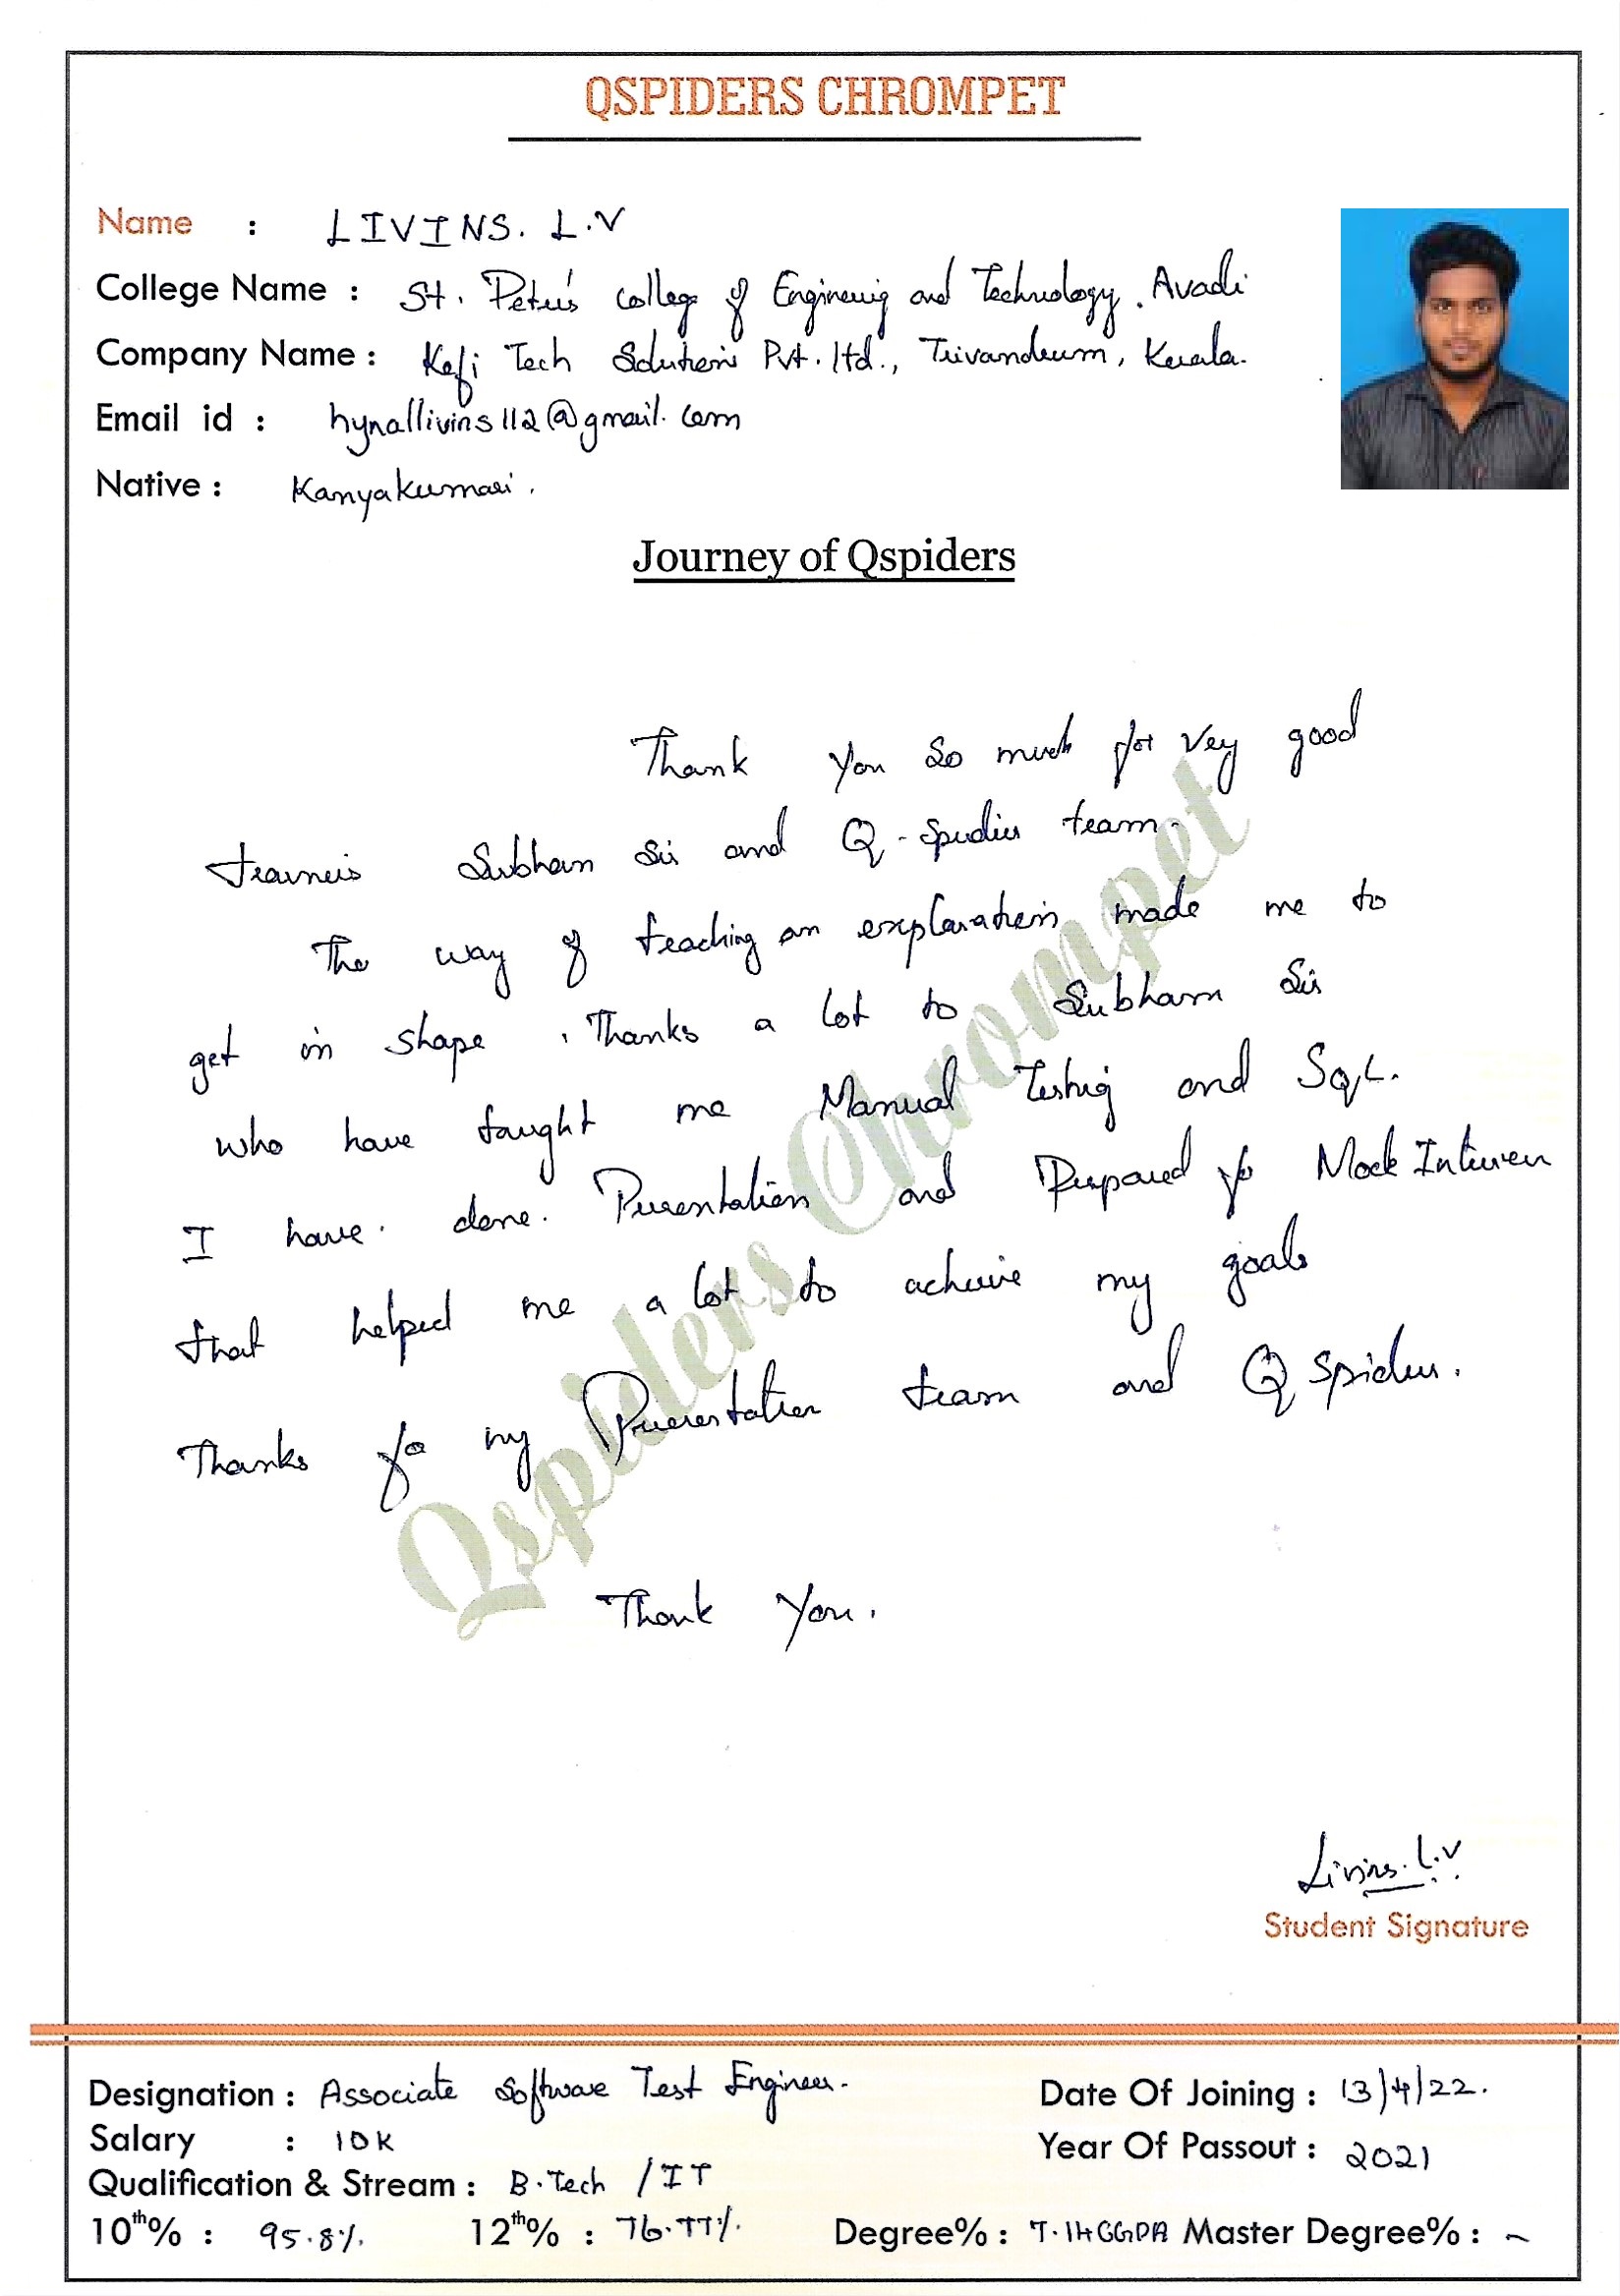 QSPIDERS CHROMPET
Name : LIVINS. L.V
College Name : St. Peter's college of Engineering and Technology. Avadi
Company Name : Kefi Tech Solutions Pvt. ltd., Trivandrum, Kerala.
Email id : hynallivins112@gmail.com
Native : Kanyakumari.
Journey of Qspiders
Thank you so much for very good
Subham Sir and Q-Spiders team.
The way of teaching an explanation made me to
get in shape. Thanks a lot to Subham Sir
who have taught me Manual Testing and SQL.
I have. done. Presentation and Prepared for Mock Interview
that helped me a lot to achieve my goals
Thanks for my Presentation team and Q Spiders.
Thank You.
Qspiders Chrompet
Livins. L.V
Student Signature
Designation : Associate Software Test Engineer.
Date Of Joining : 13/4/22.
Salary : 10K
Year Of Passout : 2021
Qualification & Stream : B.Tech / IT
10th% : 95.8%. 12th% : 76.77%. Degree% : 7.14 CGPA Master Degree% : ~